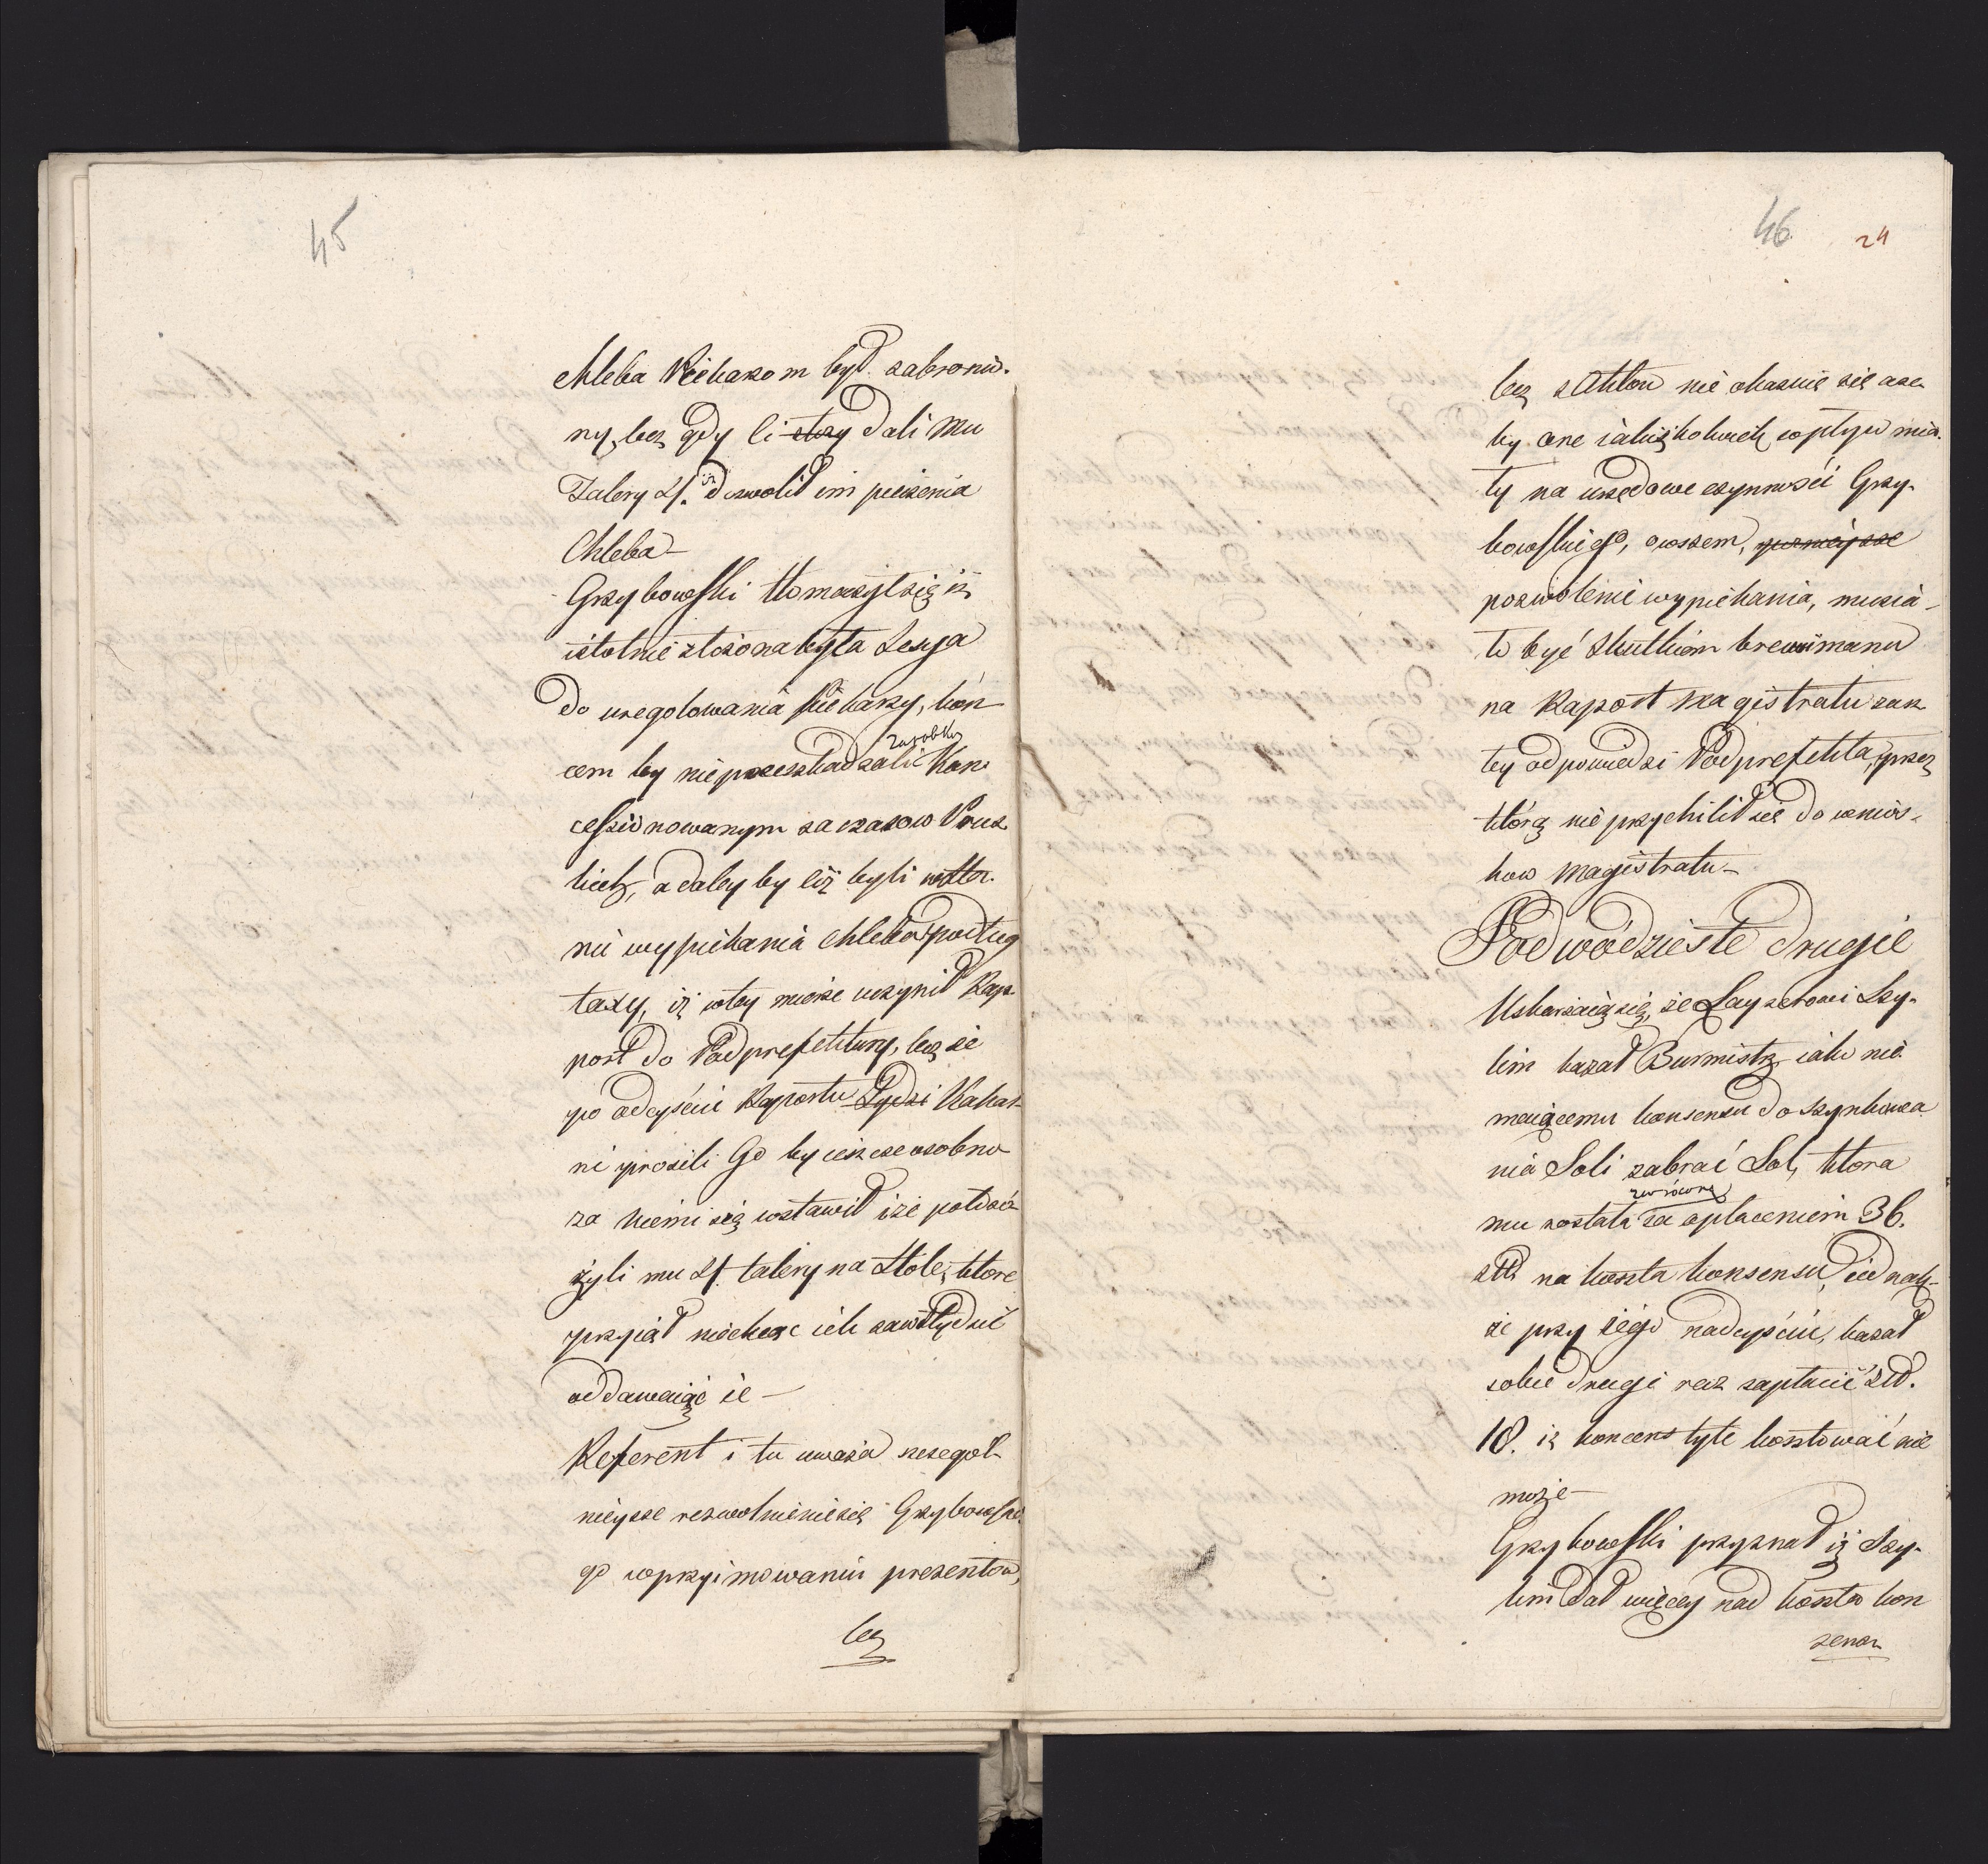 45
chleba Piekarzom był zabronio-
ny, lecz gdy ci dali mu
Talery 4. dozwolił im pieczenia
Chleba —
Grzybowski tłomaczył się iż
istotnie złożona była Sesya
do uregolowania Piekarzy, koń-
cem by nie przeszkadzali zarobku Kon-
cessionowanym za czasow Prus-
kich, a daley by ciż byli
nii wypiekania chleba podług
taxy, iż wtey mierze uczynił Rap-
port do Podprefektury, lecz że
po odeyściu Raportu Kahal-
ni prosili Go by ieszcze osobno
za niemi się wstawił i że poło-
żyli mu 4. talery na stole, ktore
przyiął niechcąc ich zawstydzić
oddawaiąc ie —
Referent i tu uważa szczegol-
nieysze rozwolnienie się Grzybowskie-
go wprzyimowaniu prezentow,
lecz
46 24
lecz z Aktow nie okazuie się aże-
by one iakiżkolwiek wpływ mia-
ły na urzędowe czynności Grzy-
bowskiego, owszem,
pozwolenie wypiekania, musia-
ło być skutkiem brewimanu
na Raport Magistratu zaz
tey odpowiedzi Podprefekta, przez
którą nie przychilił się do wnios-
kow Magistratu —
Podwódzieste drugie
Uskarżaią się, że Layzerowi Szy-
kim kazał Burmistrz iako nie
maiącemu konsensu do szynkowa
nia Soli zabrać Sol, ktora
mu została zwrócona za opłaceniem 36.
złł na koszta konsensu, iednak-
że przy iego nadeyściu, kazał
sobie drugi raz zapłacić Złł.
18. iż koncens tyle kosztować nie
może —
Grzybowski przyznał iż Szy-
kim dał więcey nad koszta kon
sensu